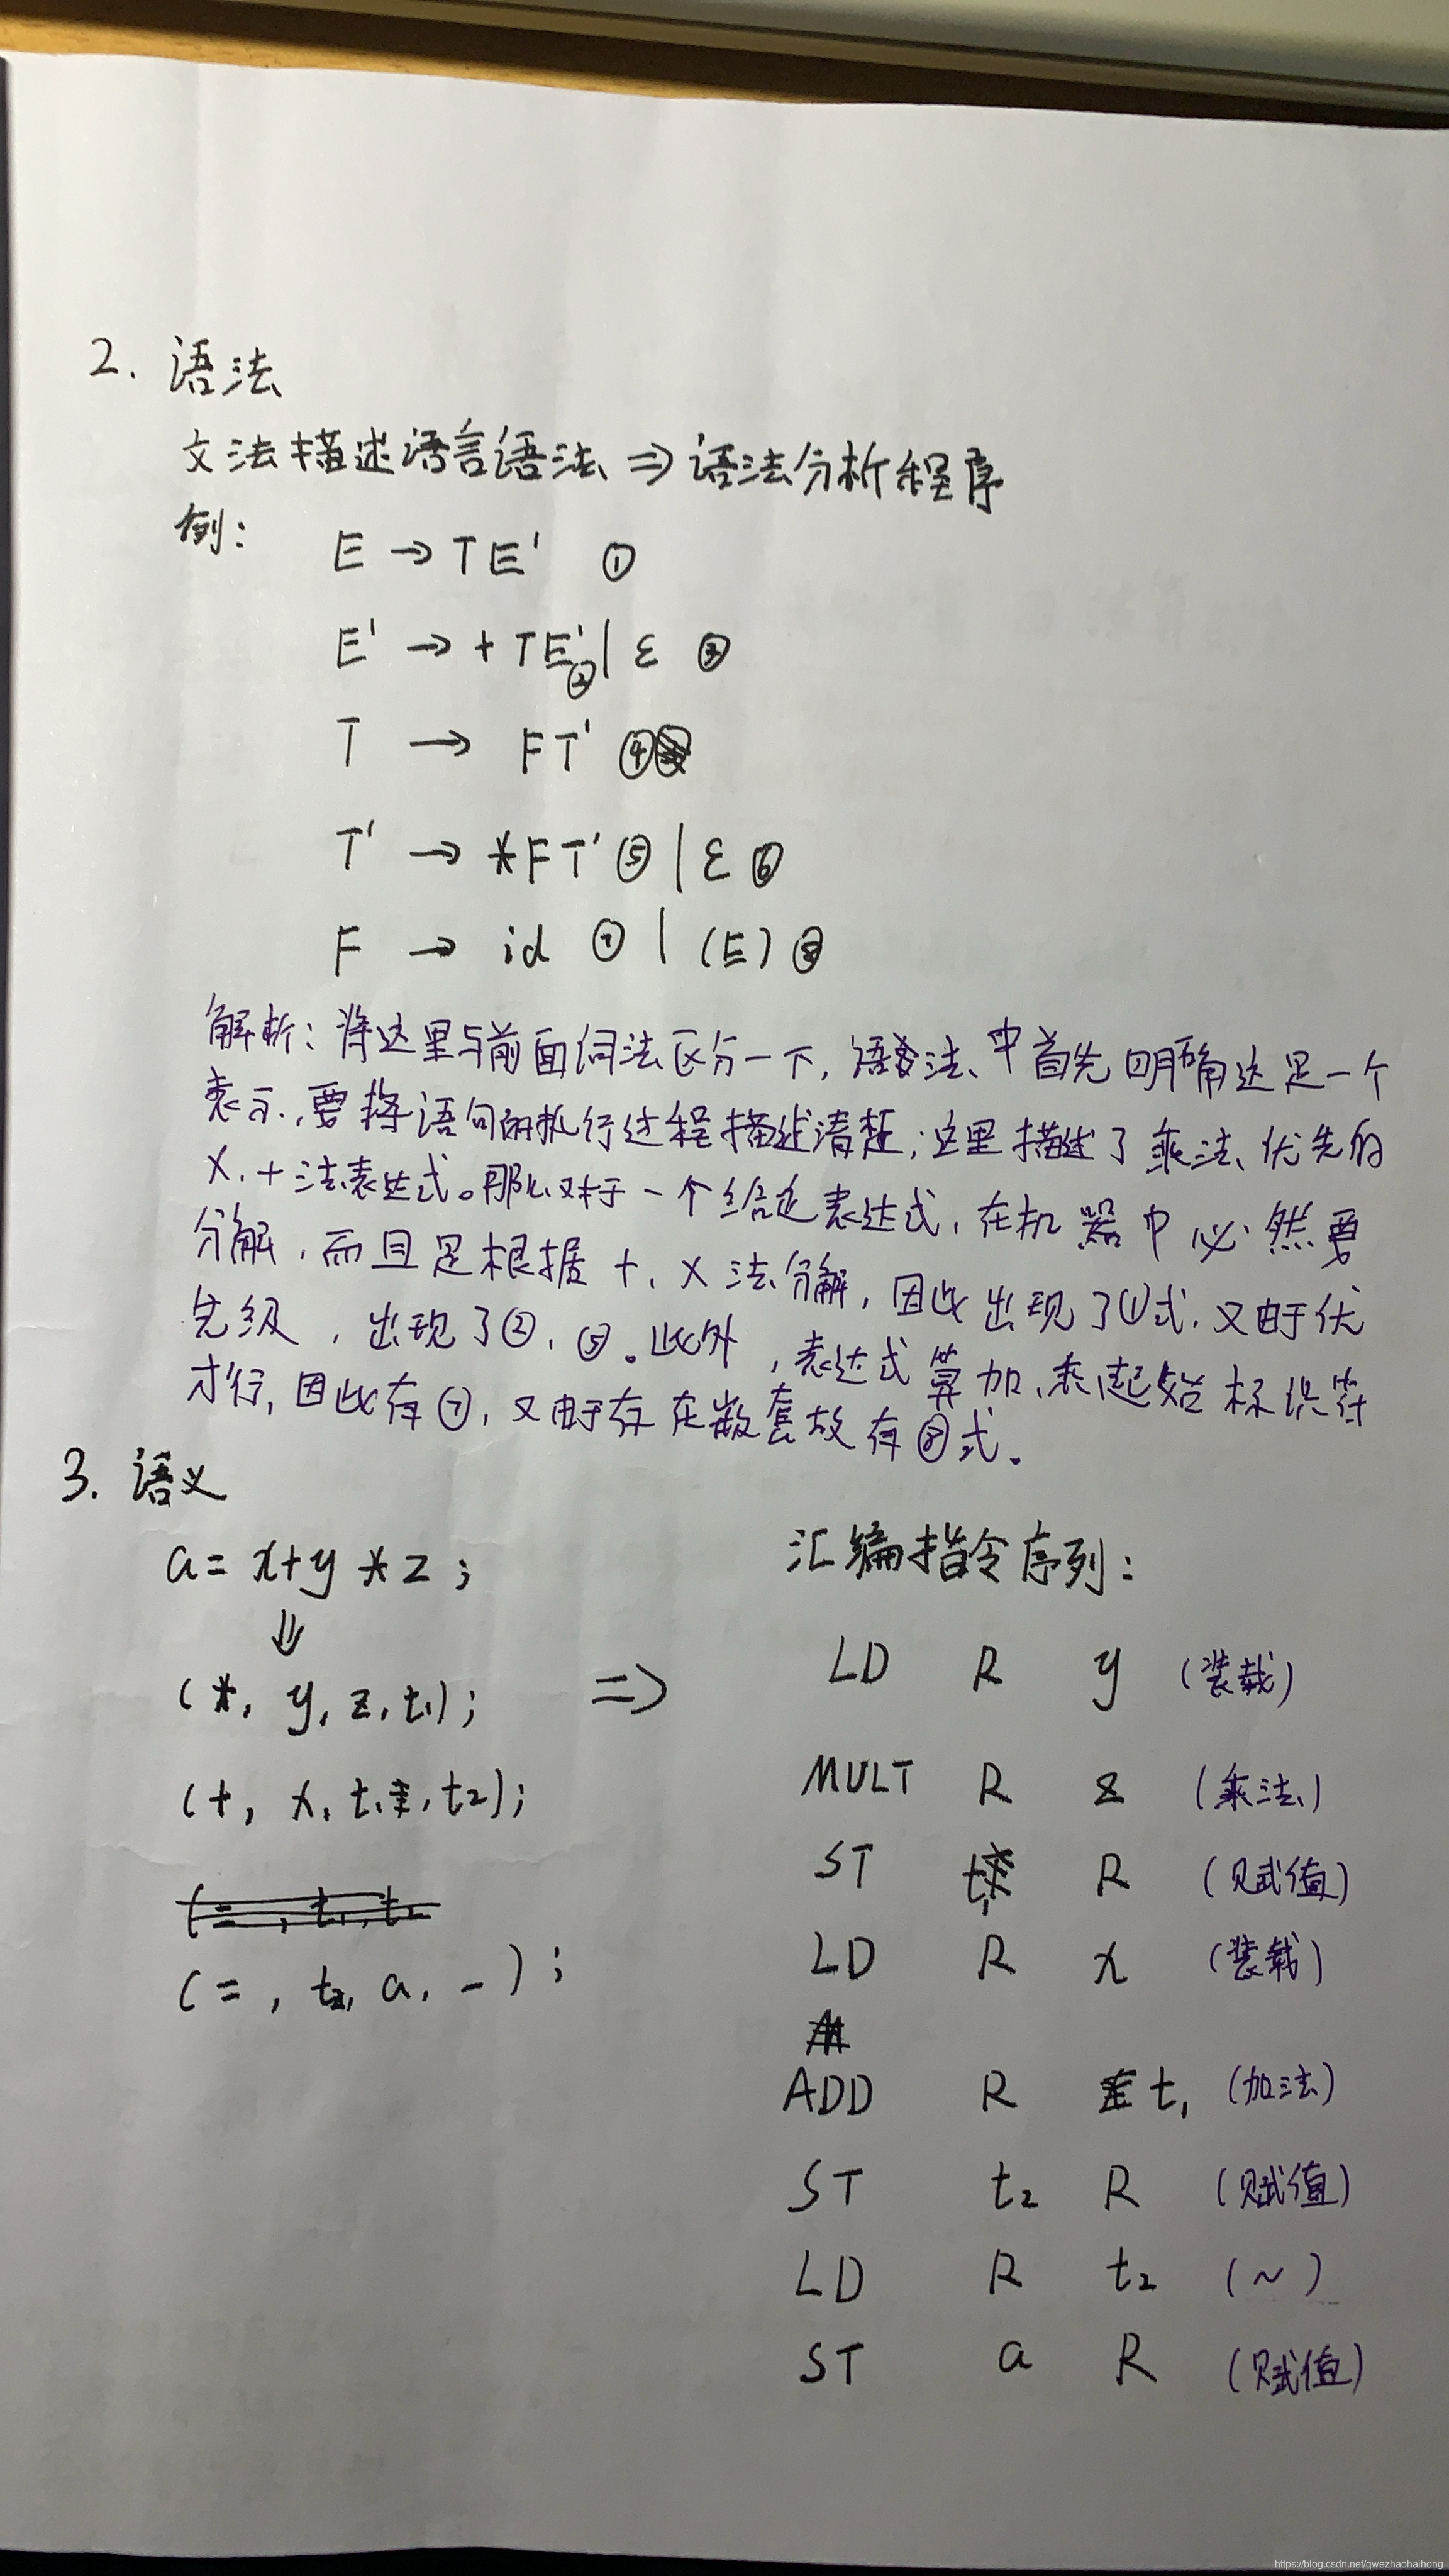 2. 语法
文法描述语言语法 ⇒ 语法分析程序
例:
E → TE' ①
E' → +TE' ② | ε ③
T → FT' ④
T' → *FT' ⑤ | ε ⑥
F → id ⑦ | (E) ⑧
解析: 将这里与前面词法区分一下, 语法中首先明确这是一个
表示, 要将语句的执行过程描述清楚; 这里描述了乘法优先的
×、+法表达式。那么对于一个给定表达式, 在机器中必然要
分解, 而且是根据+、×法分解, 因此出现了①式, 又由于优
先级, 出现了②、⑤。此外, 表达式算加、乘起始标识符
才行, 因此有⑦, 又由于存在嵌套故有⑧式。
3. 语义
a = x+y*z;
⇓
(*, y, z, t₁);
(+, x, t₁, t₂);
(=, t₂, a, -);
⇒
汇编指令序列:
LD R y (装载)
MULT R z (乘法)
ST t₁ R (赋值)
LD R x (装载)
ADD R t₁ (加法)
ST t₂ R (赋值)
LD R t₂ (~)
ST a R (赋值)
https://blog.csdn.net/qwezhaohaihong